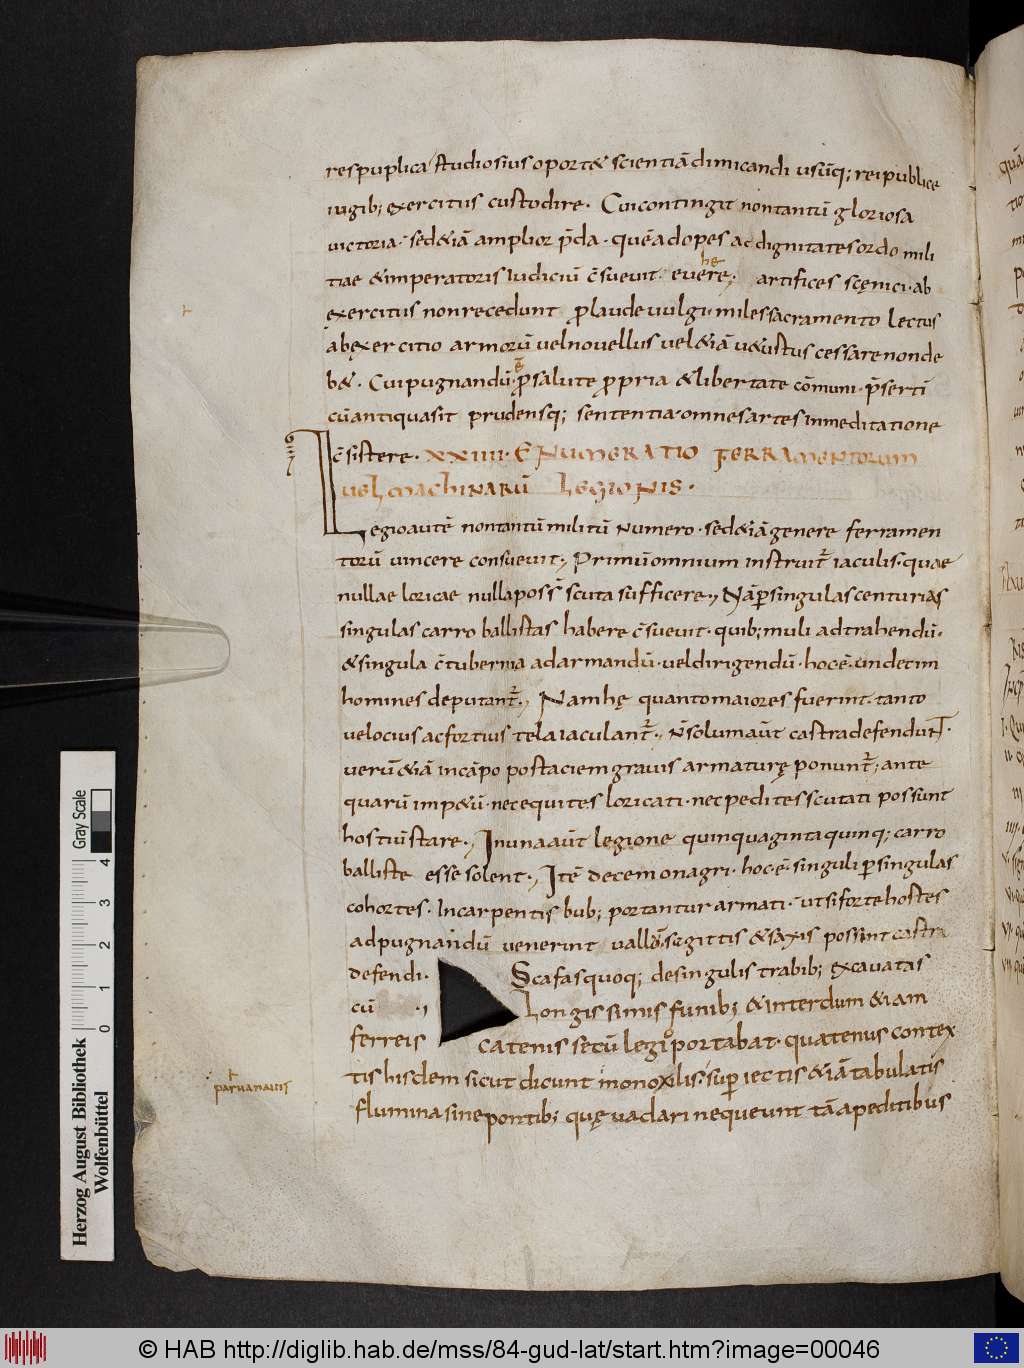 respuplica studiosius oport& scientiā dimicandi usūq; reipublice
iugib; exercitus custodire. Cui contingit non tantū gloriosa
uictoria. sed &iā amplior p̄da. quē ad opes ac dignitates ordo mili
tiae & imperatoris iudiciū c̄sueuit. euehere; artifices scęnici. ab
exercitus non recedunt pro laude uulgi. miles sacramento lectus
ab exercitio armorū uel nouellus uel &iā u&ustus cessare non de
b&. Cui pugnandū ē pro salute propria & libertate cōmuni. p̄sertī
cū antiqua sit prudensq; sententia. omnes artes in meditatione
c̄sistere. XXIIII. ENUMERATIO FERRAMENTORUM
UEL MACHINARŪ LEGIONIS.
Legio autē non tantū militū numero. sed &iā genere ferramen
torū uincere consueuit., Primū omnium instruit̄ iaculis. quae
nullae loricae nulla poss̄ scuta sufficere., Nā p̄ singulas centurias
singulas carro ballistas habere c̄sueuit. quib; muli ad trahendū.
& singula c̄tubernia ad armandū. uel dirigendū. hoc ē. undecim
homines deputant̄., Nam hę quanto maiores fuerint. tanto
uelocius ac fortius tela iaculant̄., N̄ solum aūt castra defendunt.
uerū &iā in cāpo post aciem grauis armaturę ponunt̄; ante
quarū imp&ū. nec equites loricati. nec pedites scutati possunt
hostiū stare., In una aūt legione quinquaginta quinq; carro
balliste esse solent., Itē decem onagri. hoc ē. singuli p̄ singulas
cohortes. In carpentis bub; portantur armati. ut si forte hostes
adpugnandū uenerint uallū. sagittis & saxis possint castra
defendi. Scafas quoq; de singulis trabib; excauatas
cū longissimis funib; & interdum &iam
ferreis catenis secū legio portabat. quatenus contex
tis hisdem sicut dicunt monoxilis. sup̄iectis &iā tabulatis
flumina sine pontib; quę uadari nequeunt tā a peditibus
parua nauis
Herzog August Bibliothek
Wolfenbüttel
Gray Scale
0 1 2 3 4
© HAB http://diglib.hab.de/mss/84-gud-lat/start.htm?image=00046